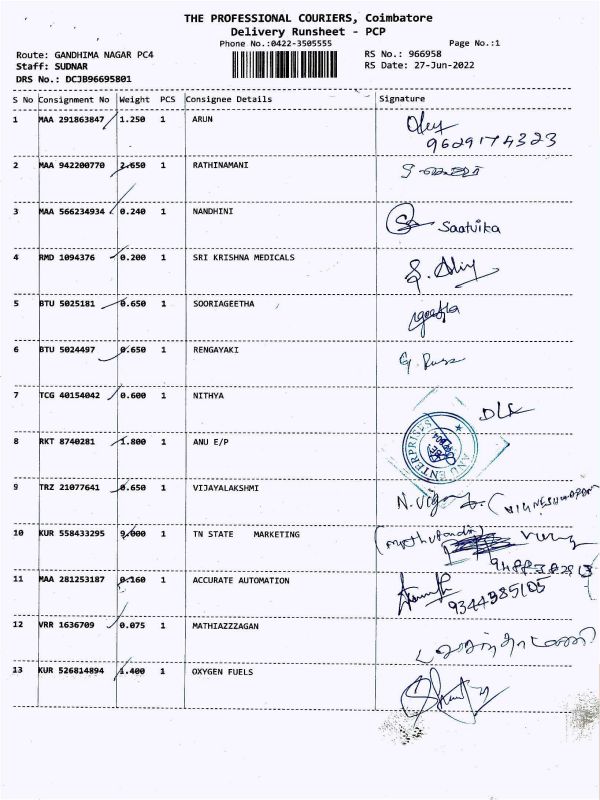 THE PROFESSIONAL COURIERS, Coimbatore
Delivery Runsheet - PCP
Phone No.:0422-3505555 Page No.:1
Route: GANDHIMA NAGAR PC4 RS No.: 966958
Staff: SUDNAR RS Date: 27-Jun-2022
DRS No.: DCJB96695801
S No Consignment No Weight PCS Consignee Details Signature
1 MAA 291863847 1.250 1 ARUN
9629174323
2 MAA 942200770 2.650 1 RATHINAMANI
3 MAA 566234934 0.240 1 NANDHINI Saatvika
4 RMD 1094376 0.200 1 SRI KRISHNA MEDICALS
5 BTU 5025181 0.650 1 SOORIAGEETHA geetha
6 BTU 5024497 0.650 1 RENGAYAKI
7 TCG 40154042 0.600 1 NITHYA
8 RKT 8740281 1.800 1 ANU E/P ANU ENTERPRISES
9 TRZ 21077641 0.650 1 VIJAYALAKSHMI
10 KUR 558433295 9.000 1 TN STATE MARKETING
11 MAA 281253187 0.160 1 ACCURATE AUTOMATION
9344385105
12 VRR 1636709 0.075 1 MATHIAZZZAGAN
13 KUR 526814894 1.400 1 OXYGEN FUELS